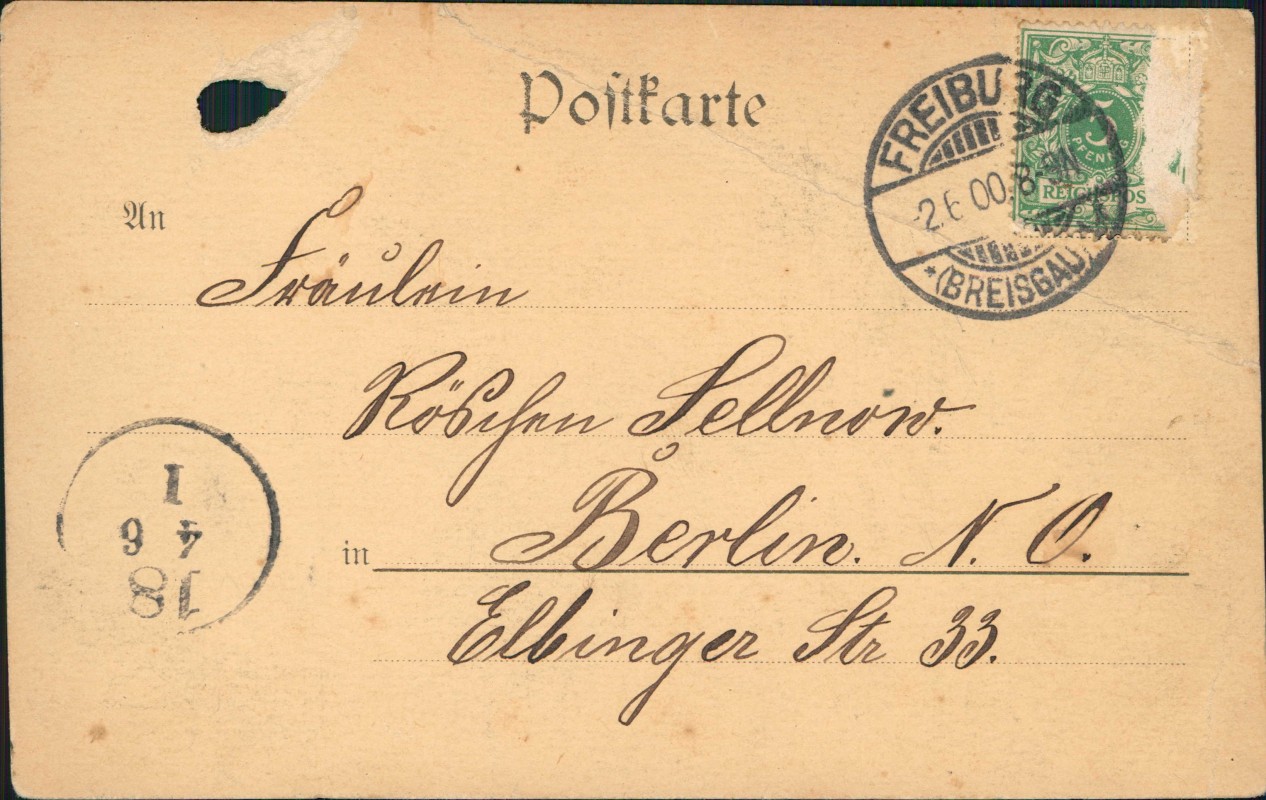 Postkarte
FREIBURG
2.6.00. 8-9N
*(BREISGAU)
5
PFENNIG
REICHSPOS
An
Fräulein
Röschen Sellnow.
in Berlin. N. O.
Elbinger Str 33.
1
4 6
18